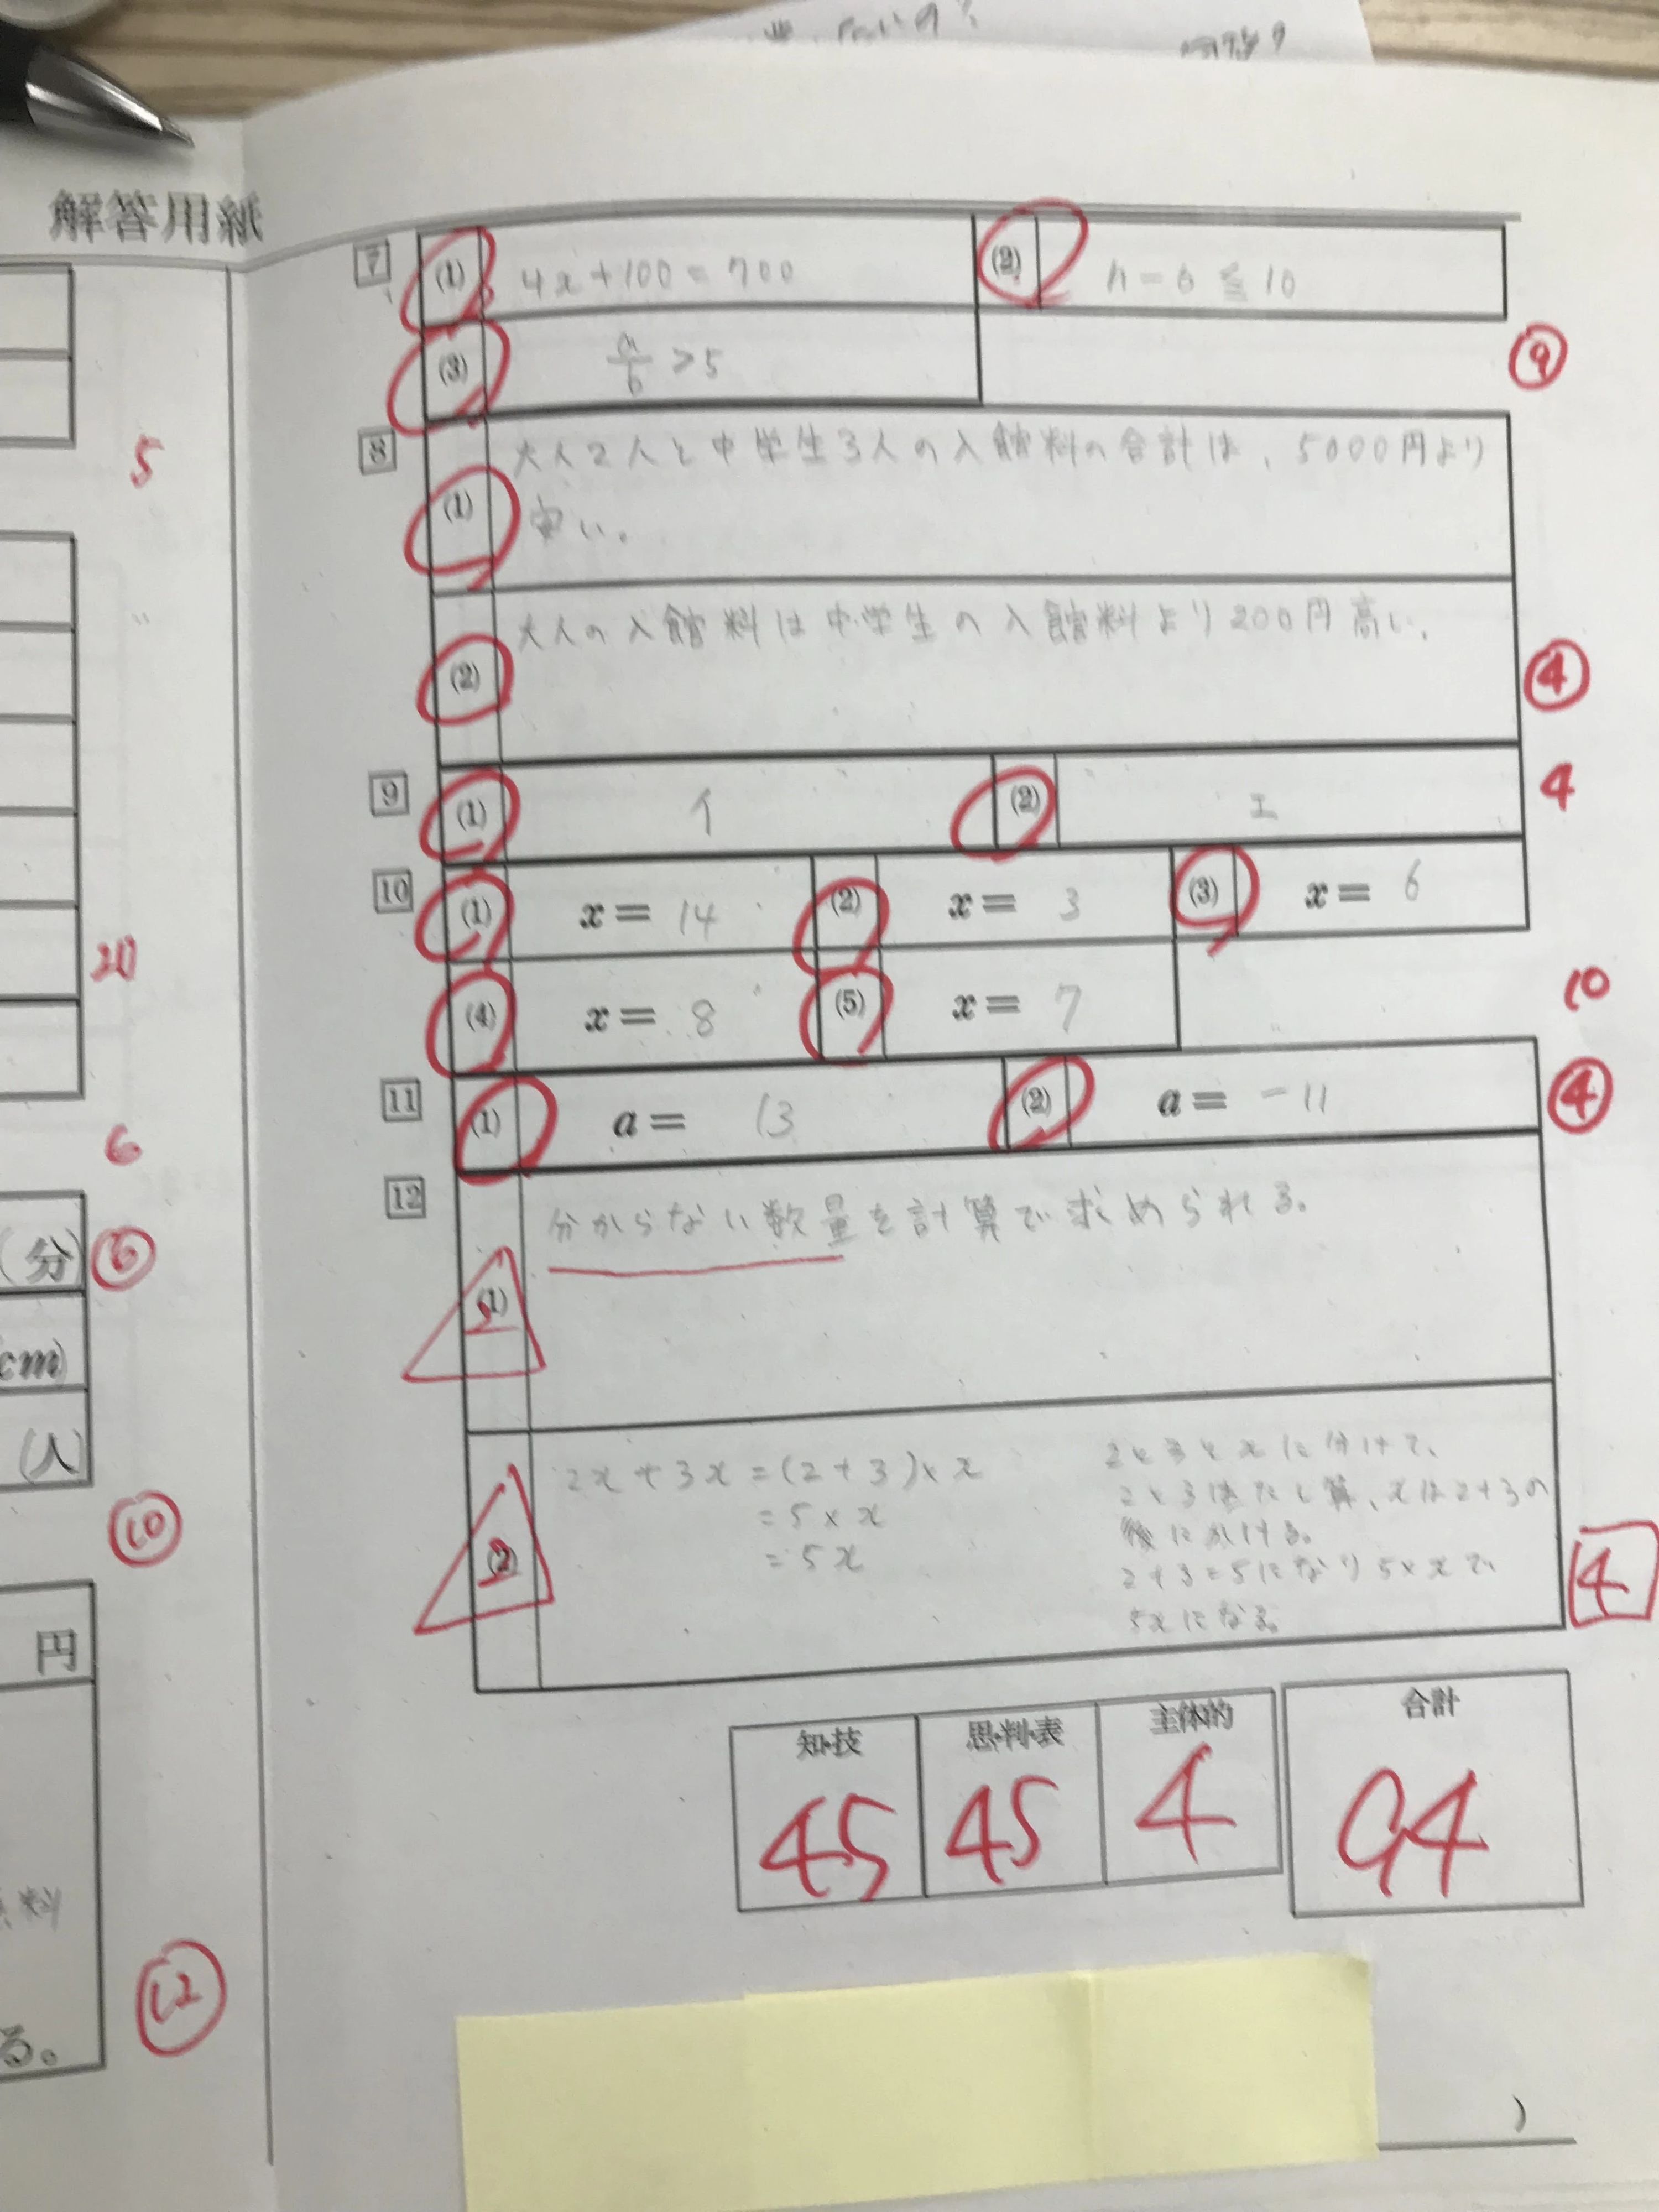 解答用紙
5
20
6
(分)
6
cm)
(人)
10
円
料
る。
12
7
(1) 4x+100=700
(2) n-6≦10
(3) a/b >5
9
8
(1) 大人2人と中学生3人の入館料の合計は、5000円より
安い。
(2) 大人の入館料は中学生の入館料より200円高い。
4
9
(1) イ
(2) エ
4
10
(1) x= 14
(2) x= 3
(3) x= 6
(4) x= 8
(5) x= 7
10
11
(1) a= 13
(2) a= -11
4
12
(1) 分からない数量を計算で求められる。
(2) 2x+3x=(2+3)×x
=5×x
=5x
2と3とxに分けて、
2と3はたし算、xは2+3の
後にかける。
2+3=5になり5×xで
5xになる。
4
知・技 思・判・表 主体的 合計
45 45 4 94
)